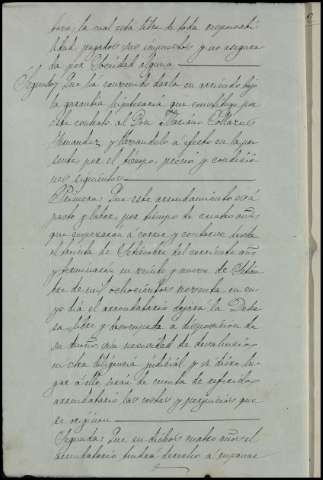 tura, la cual está libre de toda responsabi-
lidad, pagados sus impuestos y no asegura-
da por Sociedad alguna.
Segundo, Que ha convenido darla en arriendo bajo
la garantia hipotecaria que constituye por
este contrato al Don
Fernandez, y llevandolo á efecto en la pre-
sente por el tiempo, precio y condicio-
nes siguientes
Primera: Que este arrendamiento será
pacto y libre, por tiempo de cuatro años,
que empezarán á correr y contarse desde
el treinta de Setiembre del corriente año
y terminaran en veinte y nueve de Setiem-
bre de mil ochocientos noventa en cu-
yo dia el arrendatario dejará la Dehe-
sa libre y á disposicion de
su dueño sin necesidad de desahucio
ni otra diligencia judicial y si diese lu-
gar á ello serán de cuenta de referido
arrendatario las costas y perjuicios que
se originen
Segunda: Que en dichos cuatro años el
arrendatario tendrá derecho á